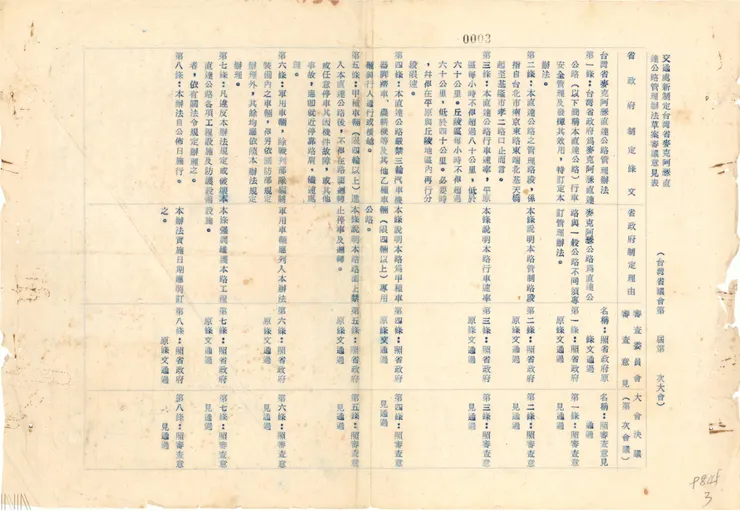 0003
交通處新制定台灣省麥克阿瑟直
達公路管理辦法草案審議意見表
(台灣省議會第 屆第 次大會)
省政府制定條文
台灣省麥克阿瑟直達公路管理辦法
第一條:台灣省政府爲麥克阿瑟直達
公路(以下簡稱本直達公路)行車
安全管理及發揮其效用,特訂定本
辦法。
第二條:本直達公路之管理路段,係
指自台北市南京東路東端北基天橋
起至基隆市孝二路口止而言。
第三條:本直達公路行車速率,平原
區每小時不得超過八十公里,低於
六十公里。丘陵區每小時不得超過
六十公里,低於四十公里。必要時
,幷得在平原與丘陵地區內再行分
段限速。
第四條:本直達公路嚴禁三輪汽車機
器脚踏車、農耕機等及其他乙種車
輛與行人通行或橫越。
第五條:甲種車輛(限四輪以上)進
入本直達公路後,不得在路面迴轉
或任意停車其因機件故障,或其他
事故,應卽就近停靠路肩,儘速處
理。
第六條:軍用車輛,除戰列部隊編制
裝備內之車輛,得另依國防部規定
辦理外,其餘均應依照本辦法規定
辦理。
第七條:凡違反本辦法規定或破壞本
直達公路各項工程設施及防護設備
者,依有關法令規定辦理之。
第八條:本辦法自公佈日施行。
省政府制定理由
麥克阿瑟公路爲直達公
路與一般公路不同須專
訂管理辦法。
本條說明本路管制路段
本條說明本路行車速率
本條說明本路爲甲種車
輛(限四輪以上)專用
公路。
本條說明本路路面上禁
止停車及迴轉。
軍用車輛應列入本辦法
本條强調維護本路工程
設施。
本辦法實施日期應明訂
之。
審查委員會
審查意見
名稱:照省政府原
條文通過
第一條:照省政府
原條文通過
第二條:照省政府
原條文通過
第三條:照省政府
原條文通過
第四條:照省政府
原條文通過
第五條:照省政府
原條文通過
第六條:照省政府
原條文通過
第七條:照省政府
原條文通過
第八條:照省政府
原條文通過
大會決議
(第 次會議)
名稱:照審查意見
通過
第一條:照審查意
見通過
第二條:照審查意
見通過
第三條:照審查意
見通過
第四條:照審查意
見通過
第五條:照審查意
見通過
第六條:照審查意
見通過
第七條:照審查意
見通過
第八條:照審查意
見通過
3